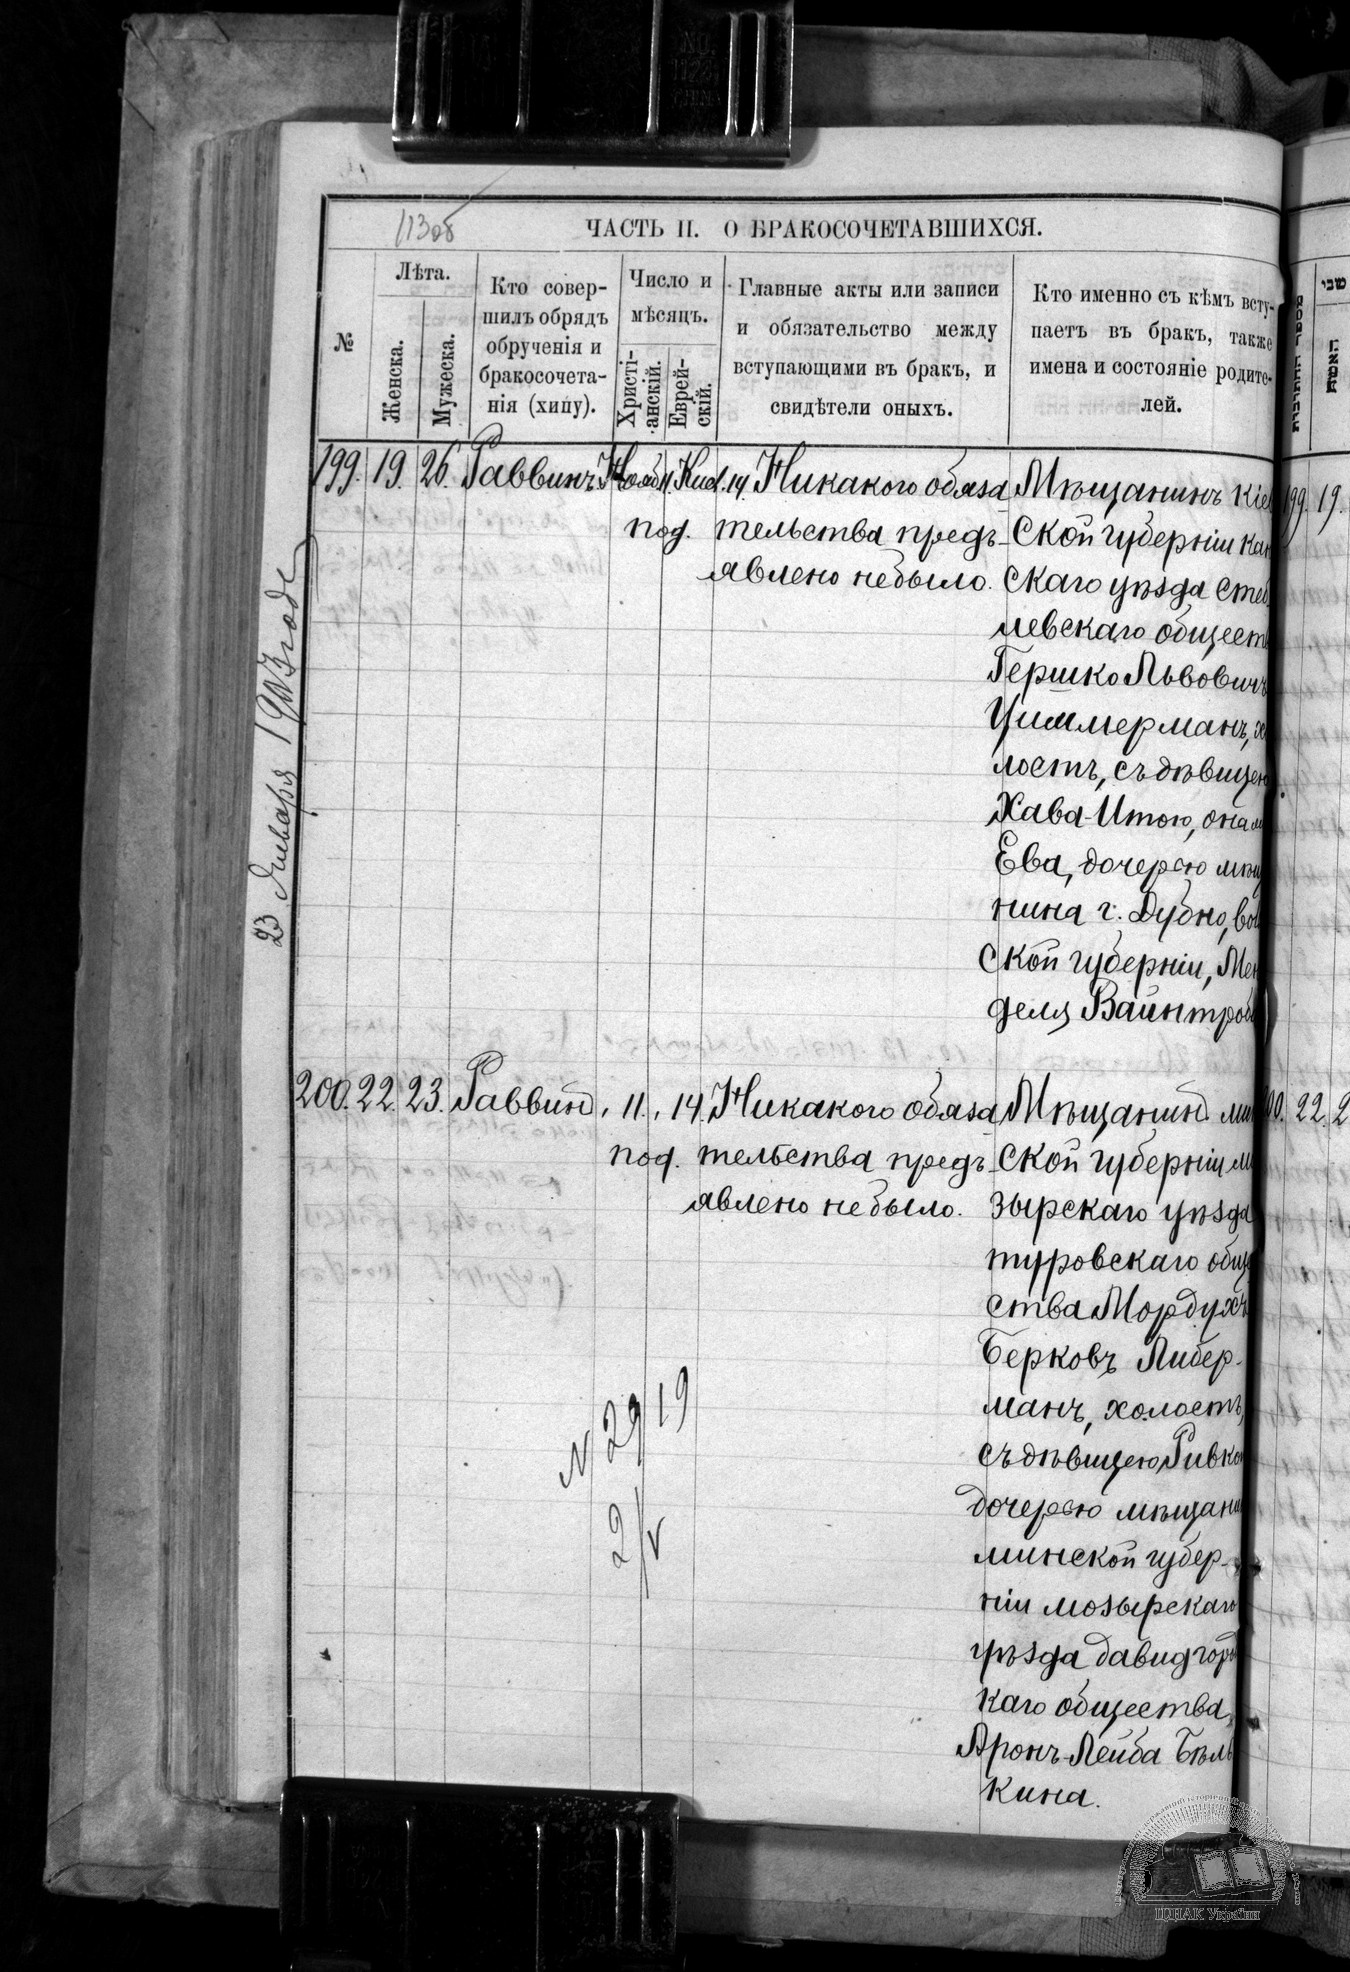 113об
ЧАСТЬ II. О БРАКОСОЧЕТАВШИХСЯ.
№
Лѣта.
Женска.
Мужеска.
Кто совер-
шилъ обрядъ
обрученія и
бракосочета-
нія (хипу).
Число и
мѣсяцъ.
Христі-
анскій.
Еврей-
скій.
Главные акты или записи
и обязательство между
вступающими въ бракъ, и
свидѣтели оныхъ.
Кто именно съ кѣмъ всту-
паетъ въ бракъ, также
имена и состояніе родите-
лей.
199. 19. 26. Раввинъ Нояб 11. Кис. 14. Никакого обяза
под. тельства предъ-
явлено небыло.
Мѣщанинъ Кіев
ской губерніи Кан
скаго уѣзда Стеб
левскаго общест
Гершко Львовичъ
Циммерманъ, х
лостъ, съ дѣвицею
Хава-Итою, она
Ева, дочерью мѣщ
нина г. Дубно, вол
ской губерніи, Мен
деля Вайнтроб
23 Января 1903 года
200. 22. 23. Раввин „ 11. „ 14. Никакого обяза
под. тельства предъ-
явлено небыло.
Мѣщанин мин
ской губерніи м
зырскаго уѣзда
туровскаго общ
ства Мордухъ
Берковъ Либер-
манъ, холостъ,
съ дѣвицею Ривкою
дочерью мѣщани
минской губер-
ніи мозырскаго
уѣзда давидгород
каго общества,
Аронъ-Лейба Бѣль
кина.
N 29/19
2/V
שני
האשת
199. 19.
00. 22. 2
ЦДІАК України